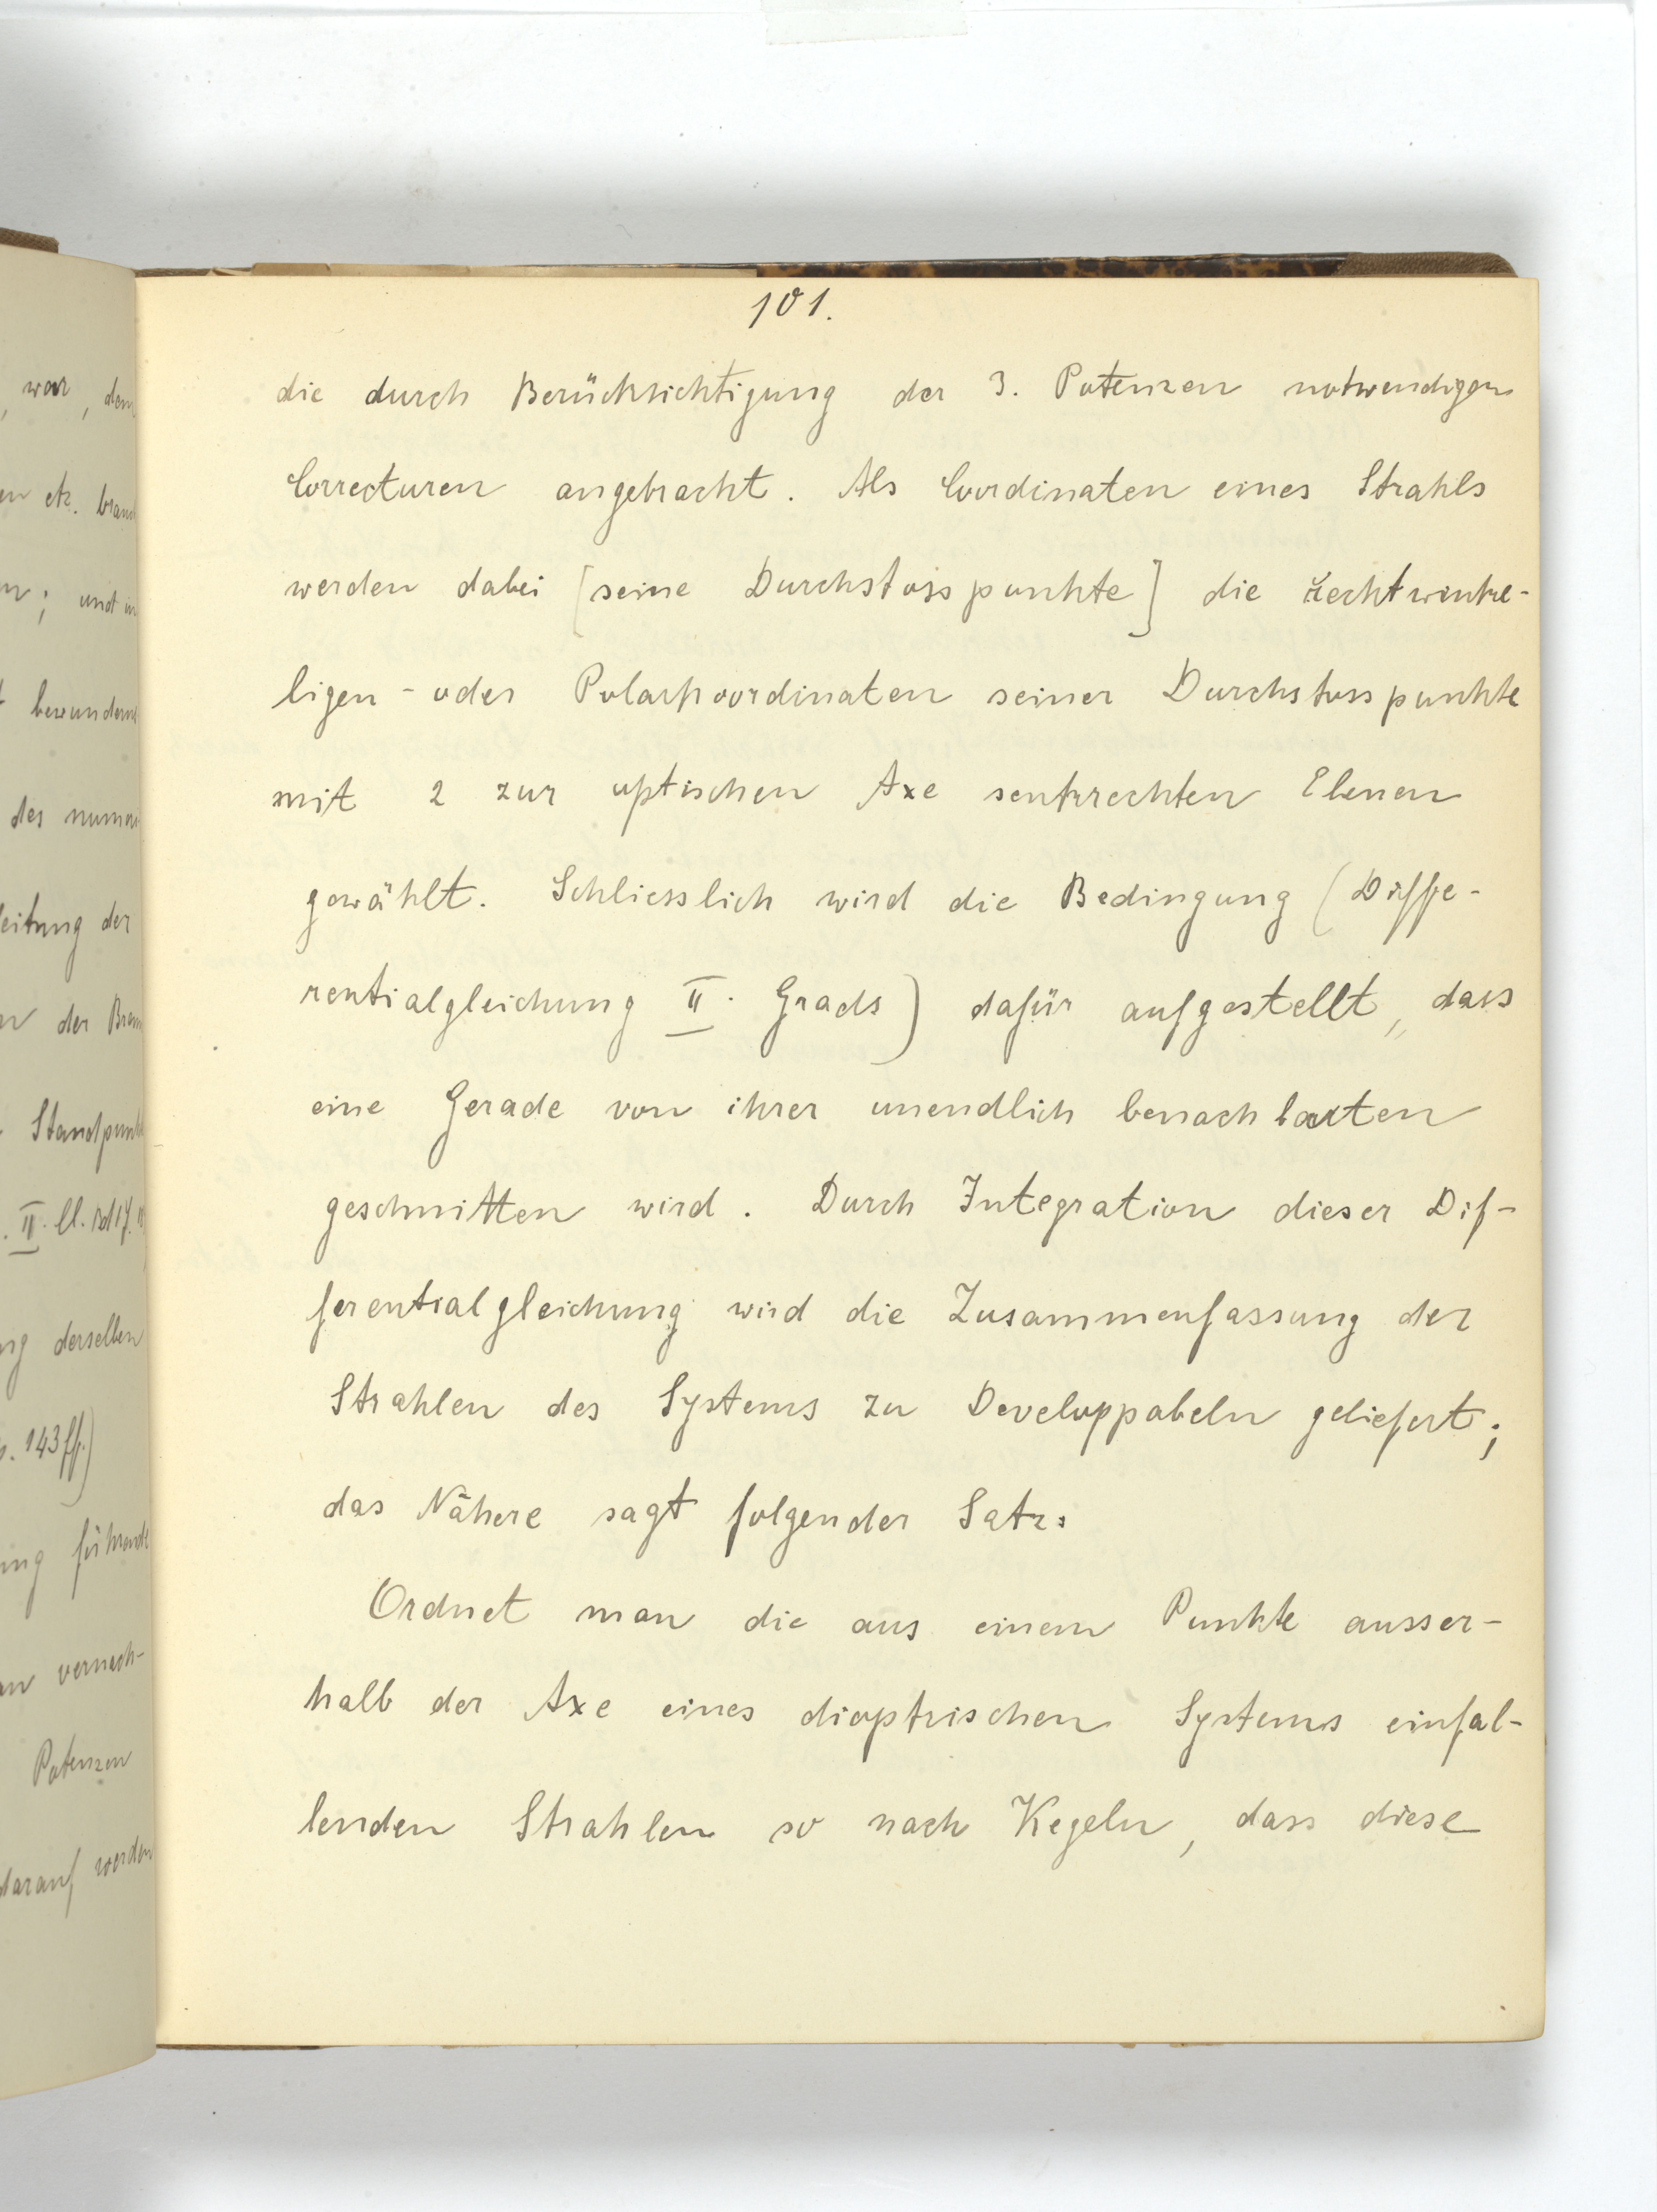 101.
die durch Berücksichtigung der 3. Potenzen notwendigen
Correcturen angebracht. Als Coordinaten eines Strahls
werden dabei [seine Durchstosspunkte] die rechtwinke-
ligen - oder Polarkoordinaten seiner Durchstosspunkte
mit 2 zur optischen Axe senkrechten Ebenen
gewählt. Schliesslich wird die Bedingung (Diffe-
rentialgleichung II. Grads) dafür aufgestellt, dass
eine Gerade von ihrer unendlich benachbarten
geschnitten wird. Durch Integration dieser Dif-
ferentialgleichung wird die Zusammenfassung der
Strahlen des Systems zu Developpabeln geliefert;
das Nähere sagt folgender Satz:
Ordnet man die aus einem Punkte ausser-
halb der Axe eines dioptrischen Systems einfal-
lenden Strahlen so nach Kegeln, dass diese
, war, den
etz.
; und in
des numer
leitung der
der
Standpunkt
II.
derselben
143 ff.)
führende
vernach-
Potenzen
darauf werden